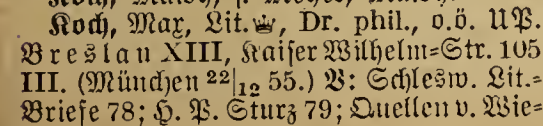 Koch, Max, Lit.♕, Dr. phil., o.ö. UP.
Breslau XIII, Kaiser Wilhelm=Str. 105
III. (München 22|12 55.) V: Schlesw. Lit.=
Briefe 78; H. P. Sturz 79; Quellen v. Wie=